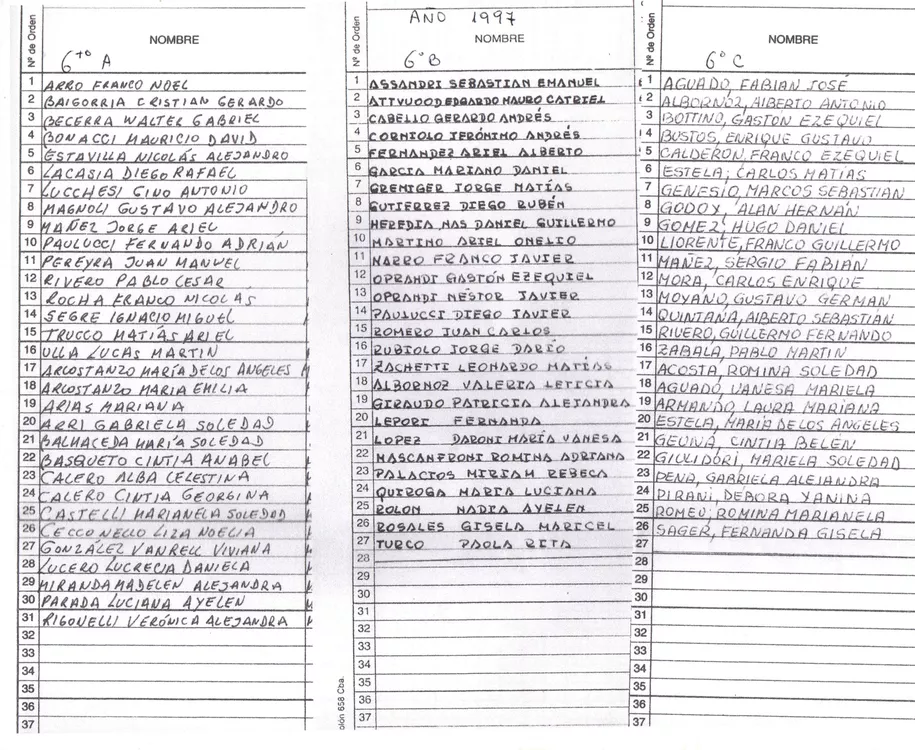 AÑO 1997
Nº de Orden
NOMBRE
6to A
1 ARRO FRANCO NOEL
2 BAIGORRIA CRISTIAN GERARDO
3 BECERRA WALTER GABRIEL
4 BONACCI MAURICIO DAVID
5 ESTAVILLA NICOLÁS ALEJANDRO
6 LACASIA DIEGO RAFAEL
7 LUCCHESI GINO ANTONIO
8 MAGNOLI GUSTAVO ALEJANDRO
9 MAÑEZ JORGE ARIEL
10 PAULUCCI FERNANDO ADRIÁN
11 PEREYRA JUAN MANUEL
12 RIVERO PABLO CESAR
13 ROCHA FRANCO NICOLÁS
14 SEGRE IGNACIO MIGUEL
15 TRUCCO MATIÁS ARIEL
16 ULLA LUCAS MARTIN
17 ARLOSTANZO MARÍA DE LOS ÁNGELES
18 ARLOSTANZO MARIA EMILIA
19 ARIAS MARIANA
20 ARRI GABRIELA SOLEDAD
21 BALMACEDA MARÍA SOLEDAD
22 BASQUETO CINTIA ANABEL
23 CALERO ALBA CELESTINA
24 CALERO CINTIA GEORGINA
25 CASTELLI MARIANELA SOLEDAD
26 CECCONELLO LIZA NOELIA
27 GONZÁLEZ VANRELL VIVIANA
28 LUCERO LUCRECIA DANIELA
29 MIRANDA MADELEN ALEJANDRA
30 PARADA LUCIANA AYELEN
31 RIGONELLI VERÓNICA ALEJANDRA
32
33
34
35
36
37
Nº de Orden
NOMBRE
6º B
1 ASSANDRI SEBASTIAN EMANUEL
2 ATTVUOOD EDGARDO MAURO GATRIEL
3 CABELLO GERARDO ANDRÉS
4 CORNIOLO JERÓNIMO ANDRÉS
5 FERNANDEZ ARIEL ALBERTO
6 GARCIA MARIANO DANIEL
7 GREMIGER JORGE MATÍAS
8 GUTIERREZ DIEGO RUBÉN
9 HEREDIA MAS DANIEL GUILLERMO
10 MARTINO ARIEL ONELIO
11 NARRO FRANCO JAVIER
12 OPRANDI GASTÓN EZEQUIEL
13 OPRANDI NÉSTOR JAVIER
14 PAULUCCI DIEGO JAVIER
15 ROMERO JUAN CARLOS
16 RUBIOLO JORGE DARÍO
17 ZACHETTI LEONARDO MATÍAS
18 ALBORNOZ VALERIA LETICIA
19 GIRAUDO PATRICIA ALEJANDRA
20 LEPORI FERNANDA
21 LOPEZ DARONI MARÍA VANESA
22 MASCANFRONI ROMINA ADRIANA
23 PALACIOS MIRIAM REBECA
24 QUIROGA MARIA LUCIANA
25 ROLON NADIA AYELEN
26 ROSALES GISELA MARICEL
27 TURCO PAOLA RITA
28
29
30
31
32
33
34
35
36
37
olón 658 Cba.
Nº de Orden
NOMBRE
6º C
1 AGUADO, FABIAN JOSÉ
2 ALBORNOZ, ALBERTO ANTONIO
3 BOTTINO, GASTON EZEQUIEL
4 BUSTOS, ENRIQUE GUSTAVO
5 CALDERON, FRANCO EZEQUIEL
6 ESTELA, CARLOS MATIAS
7 GENESIO, MARCOS SEBASTIAN
8 GODOY, ALAN HERNÁN
9 GOMEZ, HUGO DANIEL
10 LLORENTE, FRANCO GUILLERMO
11 MAÑEZ, SERGIO FABIÁN
12 MORA, CARLOS ENRIQUE
13 MOYANO, GUSTAVO GERMAN
14 QUINTANA, ALBERTO SEBASTIÁN
15 RIVERO, GUILLERMO FERNANDO
16 ZABALA, PABLO MARTIN
17 ACOSTA, ROMINA SOLEDAD
18 AGUADO, VANESA MARIELA
19 ARMANDO, LAURA MARIANA
20 ESTELA, MARIA DE LOS ANGELES
21 GEUNA, CINTIA BELÉN
22 GIULIDORI, MARIELA SOLEDAD
23 PENA, GABRIELA ALEJANDRA
24 PIRANI, DEBORA YANINA
25 ROMEU, ROMINA MARIANELA
26 SAGER, FERNANDA GISELA
27
28
29
30
31
32
33
34
35
36
37